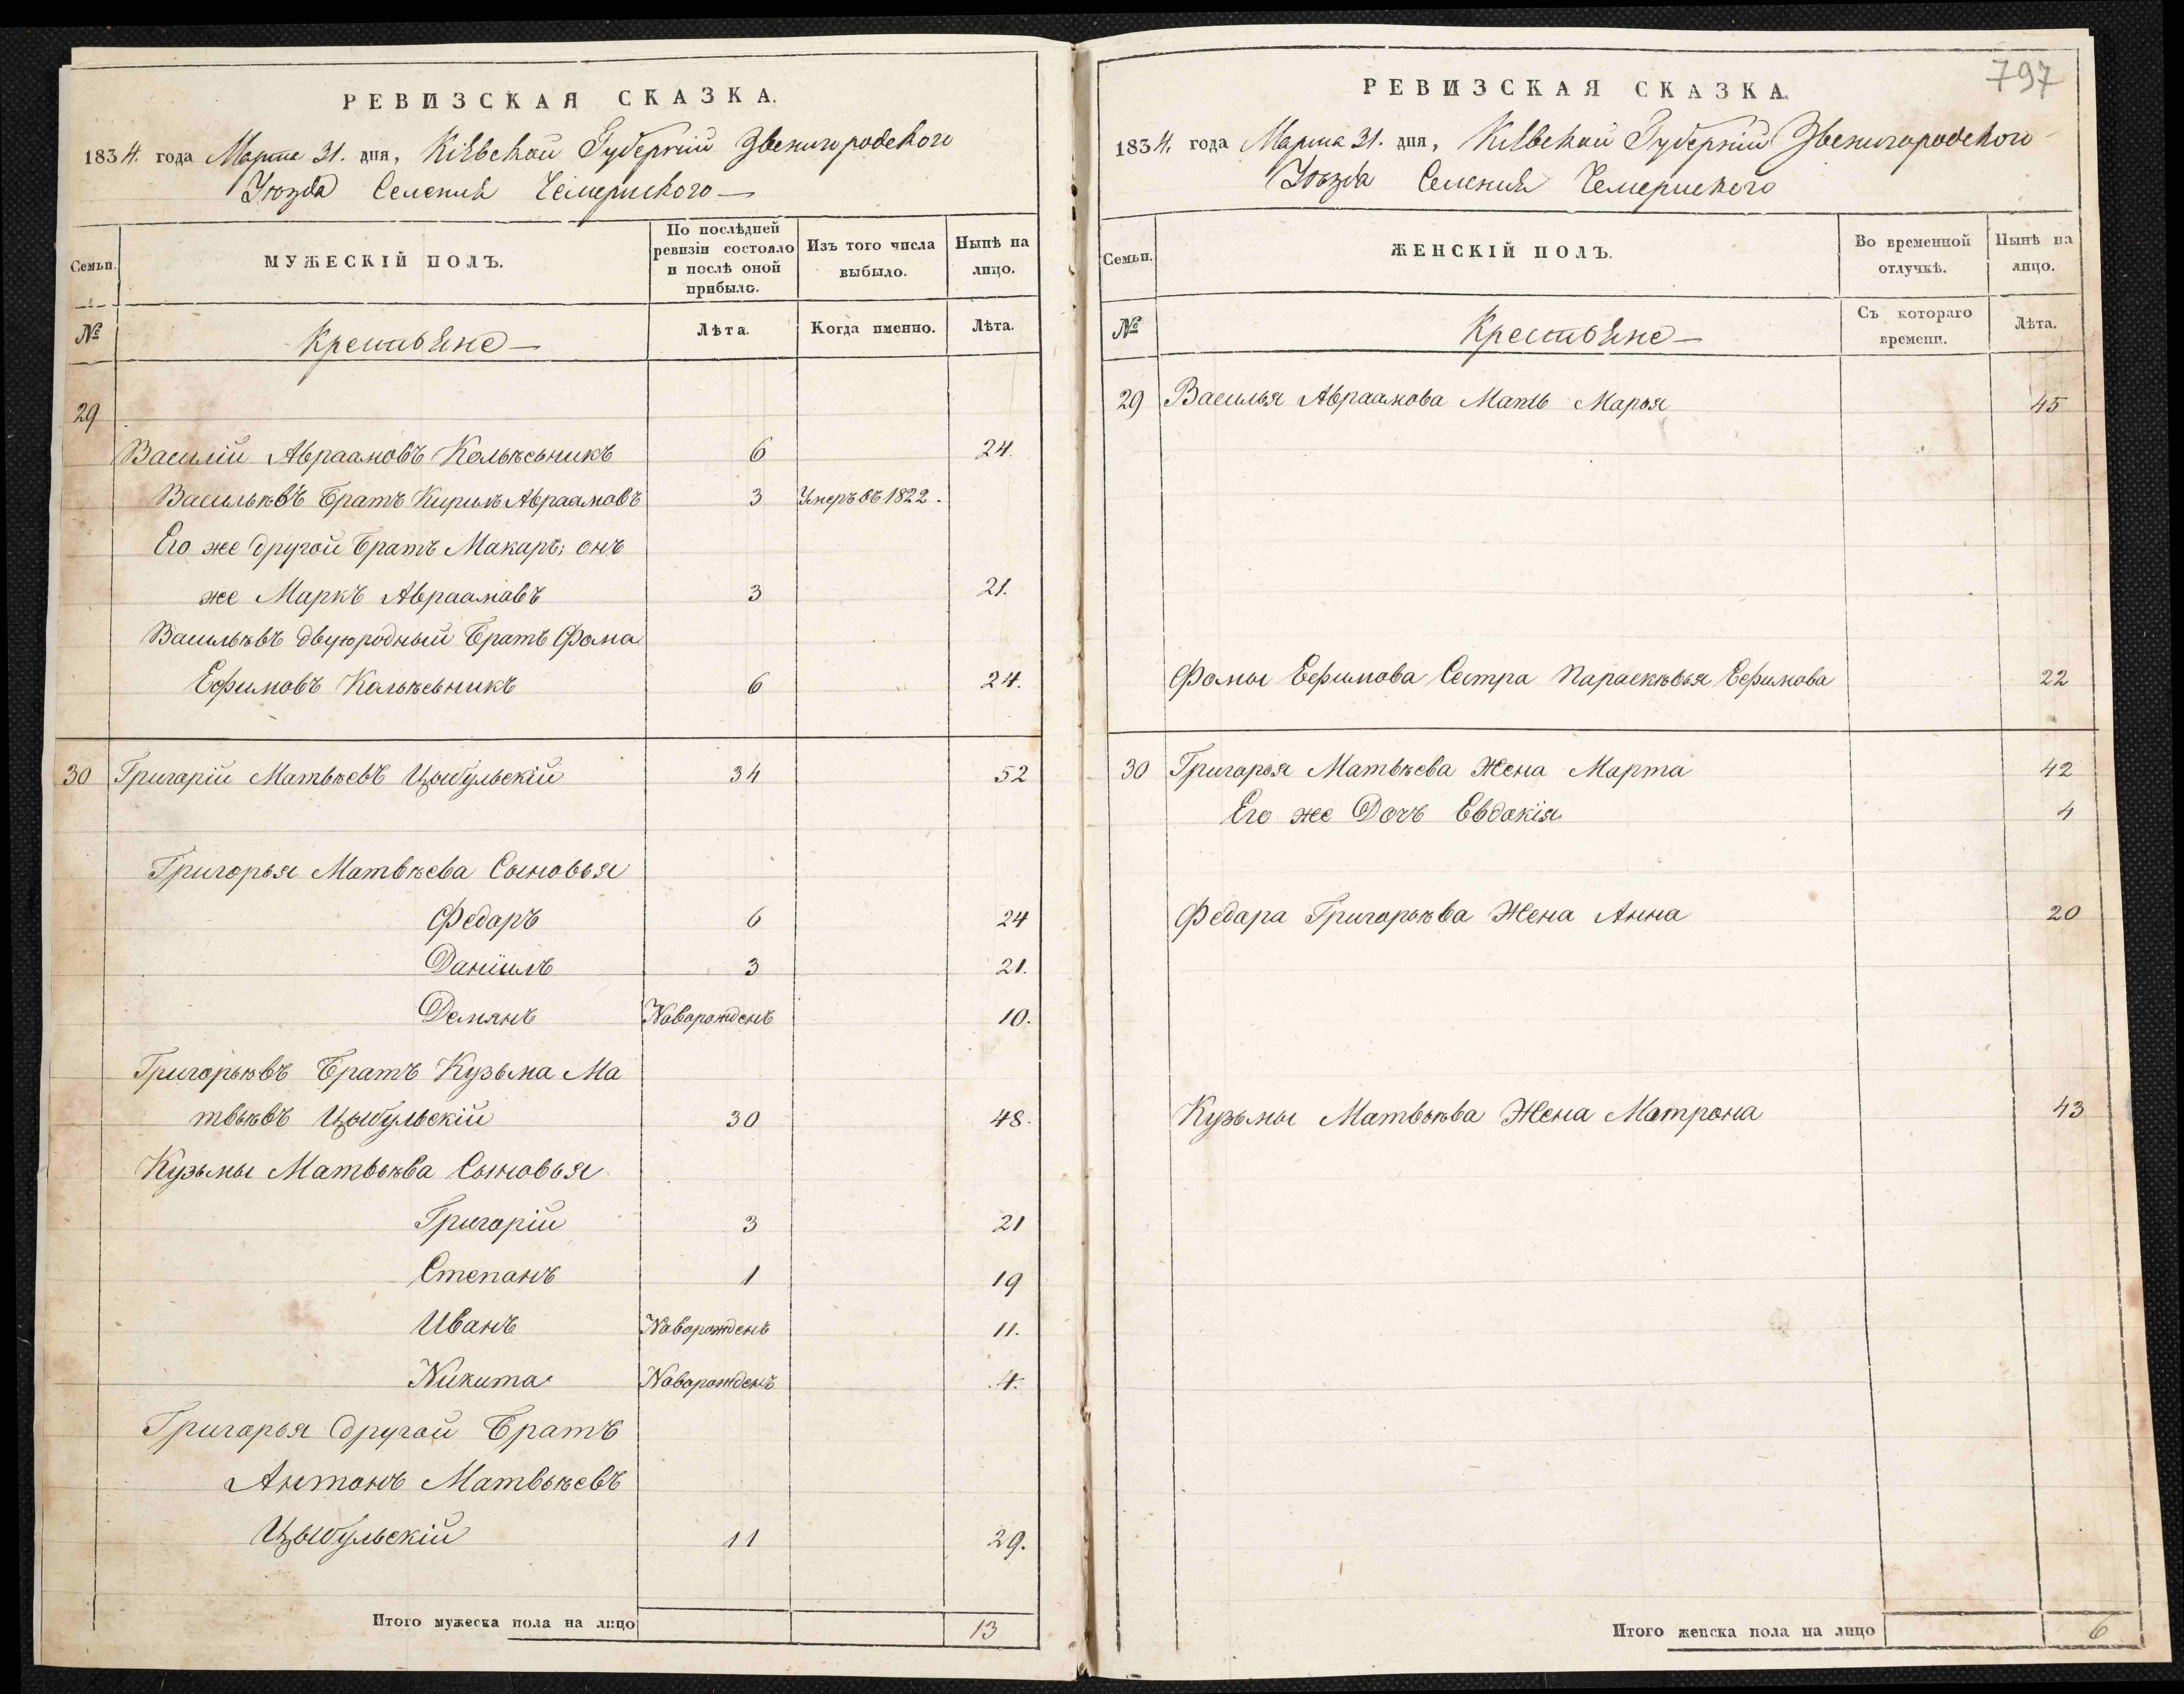 РЕВИЗСКАЯ СКАЗКА.
1834. года Марта 31. дня, Кіѣвской Губерніи Звенигородского
Уѣзда Селенія Чемериского
Семьи. МУЖЕСКІЙ ПОЛЪ. По послѣдней ревизіи состояло и послѣ оной прибыло. Изъ того числа выбыло. Нынѣ на лицо.
№ Крестьяне Лѣта. Когда именно. Лѣта.
29
Василій Авраамовъ Колѣсьникъ 6 24.
Васильѣвъ Братъ Кирилъ Авраамовъ 3 Умеръ въ 1822.
Его же другой Братъ Макаръ; онъ
же Маркъ Авраамовъ 3 21.
Васильѣвъ двуюродный Братъ Фома
Ефимовъ Колѣсьникъ 6 24.
30 Григорій Матвѣевъ Цыбульскій 34 52
Григорья Матвѣева Сыновья
Федоръ 6 24
Даніилъ 3 21.
Демянъ Новорожденъ 10.
Григорьѣвъ Братъ Кузьма Ма
твьѣвъ Цыбульскій 30 48.
Кузьмы Матвьѣва Сыновья
Григорій 3 21
Степанъ 1 19
Иванъ Новорожденъ 11.
Никита Новорожденъ 4.
Григорья другой Братъ
Антонъ Матвьѣевъ
Цыбульскій 11 29.
Итого мужеска пола на лицо 13
797
РЕВИЗСКАЯ СКАЗКА.
1834. года Марта 31. дня, Кіѣвской Губерніи Звенигородского
Уѣзда Селенія Чемериского
Семьи. ЖЕНСКІЙ ПОЛЪ. Во временной отлучкѣ. Нынѣ на лицо.
№ Крестьяне Съ котораго времени. Лѣта.
29 Василья Авраамова Мать Марья 45
Фомы Ефимова Сестра Параскѣвья Ефимова 22
30 Григорья Матвѣева Жена Марта 42
Его же Дочъ Евдокія 4
Федора Григорьѣва Жена Анна 20
Кузьмы Матвьѣва Жена Матрона 43
Итого женска пола на лицо 6